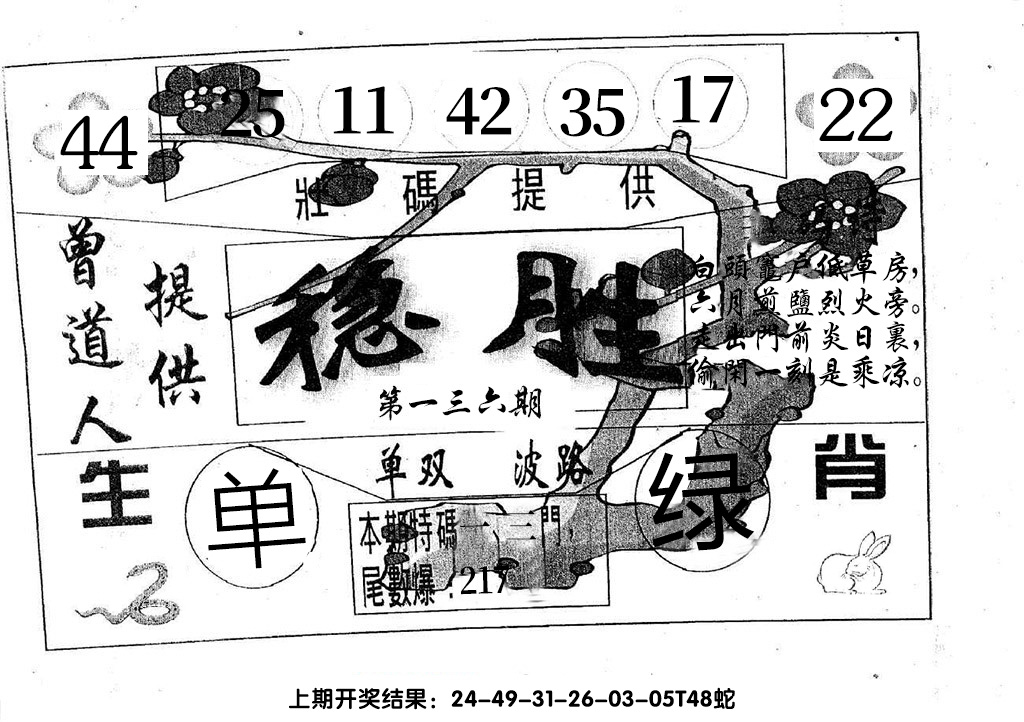 44 25 11 42 35 17 22
壯碼提供
曾道人
提供
稳胜
第一三六期
白頭竈户低草房，
六月煎鹽烈火旁。
走出門前炎日裏，
偷閑一刻是乘凉。
单双 波路
生肖
单
绿
本期特碼一、三門，
尾數爆：217
上期开奖结果：24-49-31-26-03-05T48蛇